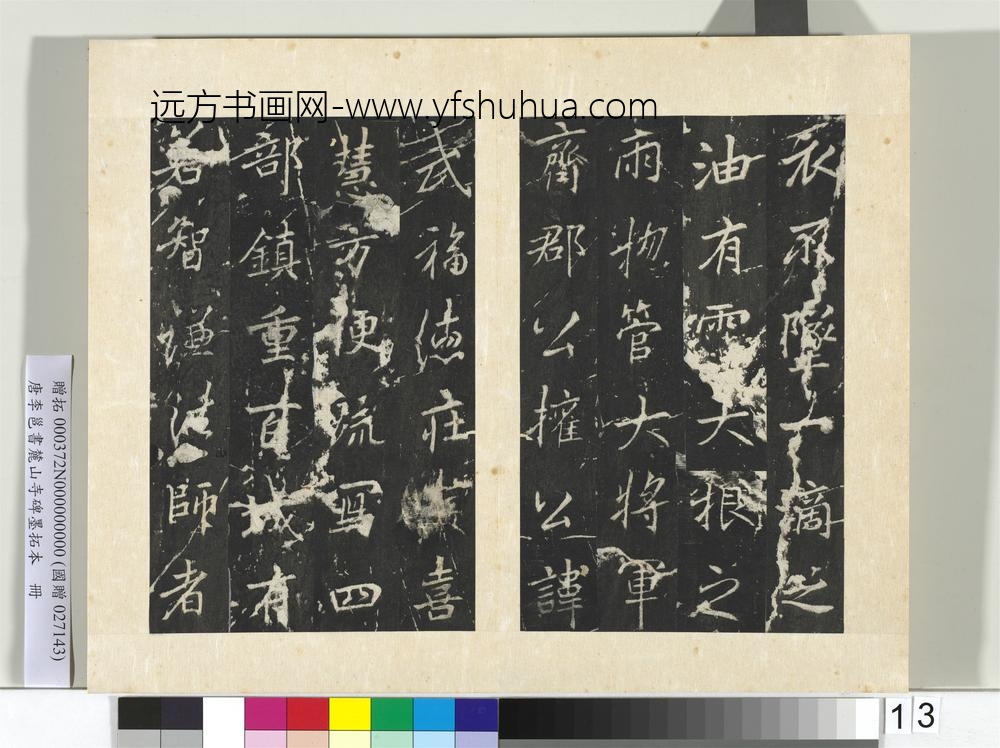 远方书画网-www.yfshuhua.com
衣不墜一滴之
油有霑大根之
雨物管大將軍
齊郡公權公諱
武福德莊嚴喜
慧方便疏写四
部鎮重百城有
若智謙法師者
贈拓 000372N000000000 (國贈 027143)
唐李邕書麓山寺碑墨拓本 冊
13